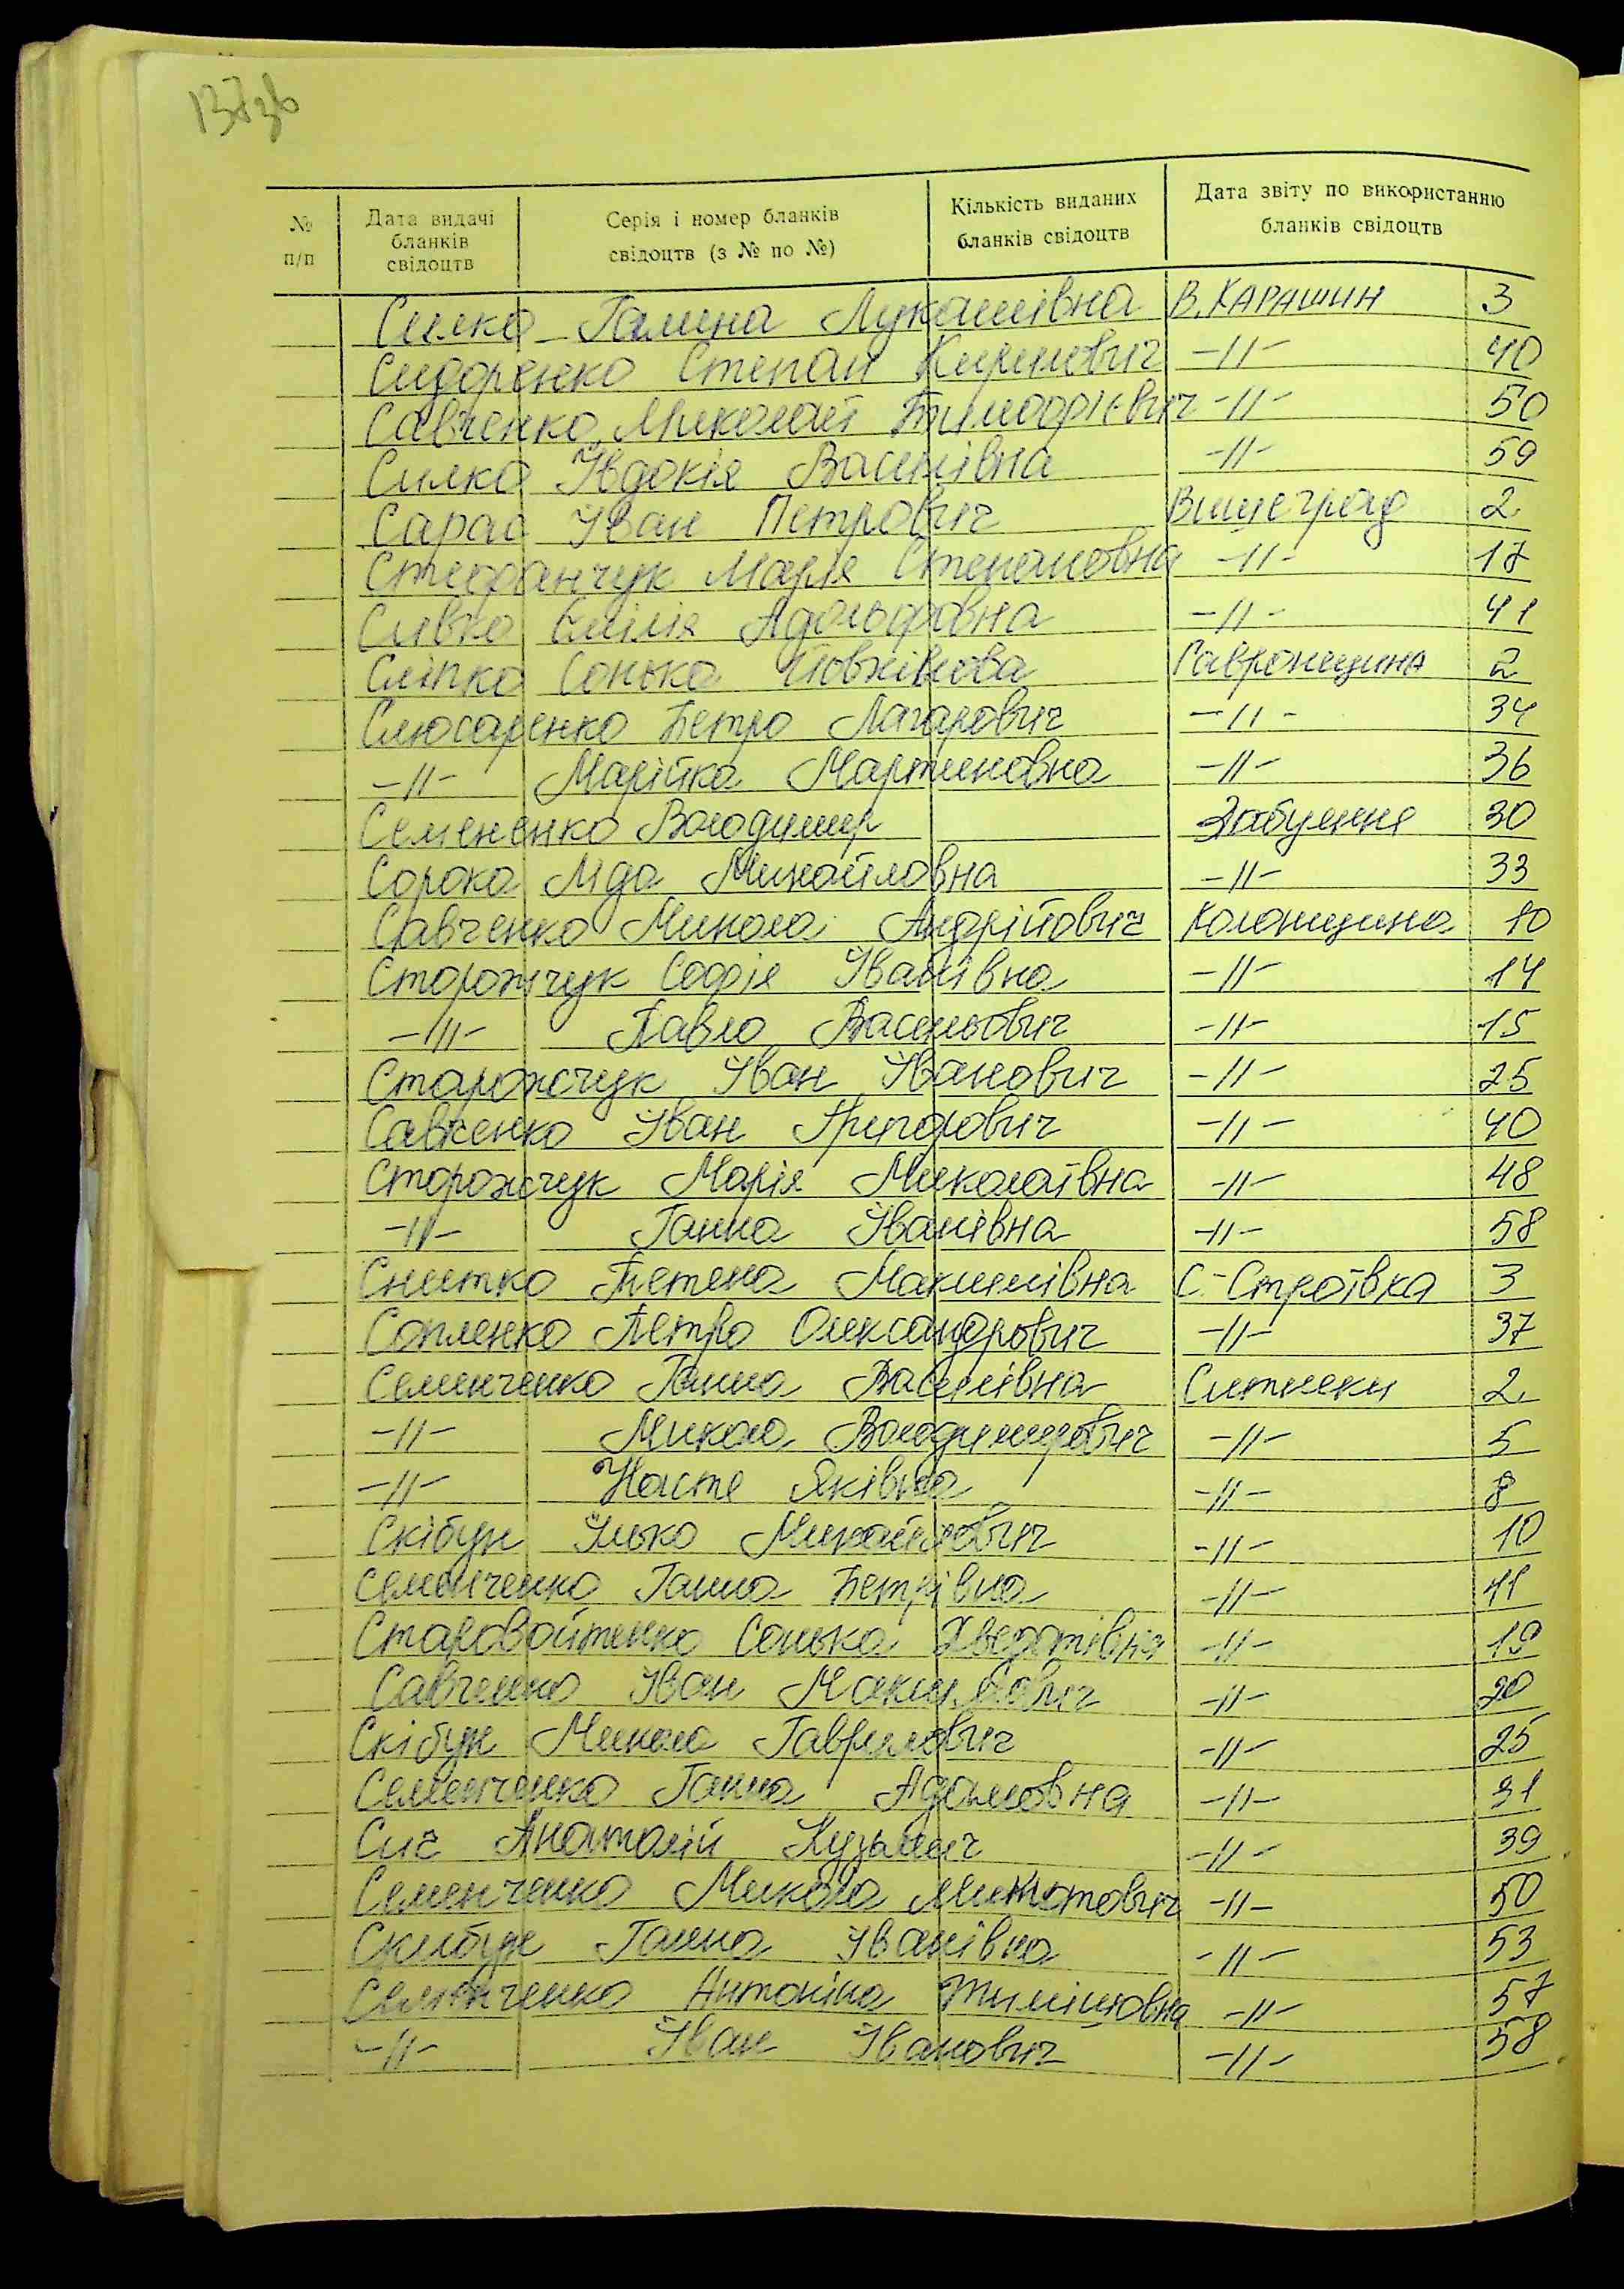 137зв
№ п/п
Дата видачі бланків свідоцтв
Серія і номер бланків свідоцтв (з № по №)
Кількість виданих бланків свідоцтв
Дата звіту по використанню бланків свідоцтв
Силко Галина Лукашівна В. КАРАШИН 3
Сидоренко Степан Кирилович -//- 40
Савченко Миколай -//- 50
Силко Івдокія Василівна -//- 59
Сарас Іван Петрович Вишеград 2
Стефанчук Марія Степановна -//- 17
Сивко Емілія Адольфовна -//- 41
Сліпко Сонька Гавронщина 2
Слюсаренко Петро Лазарович -//- 34
-//- Марійка Мартиновна -//- 36
Семененко Володимир Забуяння 30
Сорока Михайловна -//- 33
Савченко Микола Андрійович Колонщина 10
Сторожчук Софія Іванівна -//- 14
-//- Павло Васильович -//- 15
Сторожчук Іван Іванович -//- 25
Савченко Іван Григорович -//- 40
Сторожчук Марія Миколаївна -//- 48
-//- Ганна Іванівна -//- 58
Снитко Тетена Макимівна С-Строївка 3
Сопленко Петро Олександрович -//- 37
Семенченко Ганна Василівна Ситняки 2
-//- Микола Володимирович -//- 5
-//- Настя Яківна -//- 8
Скібун Ілько Михайлович -//- 10
Семенченко Ганна Петрівна -//- 11
Старовойтенко Сонька -//- 19
Савченко Іван Максимович -//- 20
Скібун Микола Гаврилович -//- 25
Семенченко Ганна Адамовна -//- 31
Сич Анатолій Кузьмич -//- 39
Семенченко Микола -//- 50
Скибун Ганна Іванівна -//- 53
Семенченко Антоніна Тимішовна -//- 57
-//- Іван Іванович -//- 58